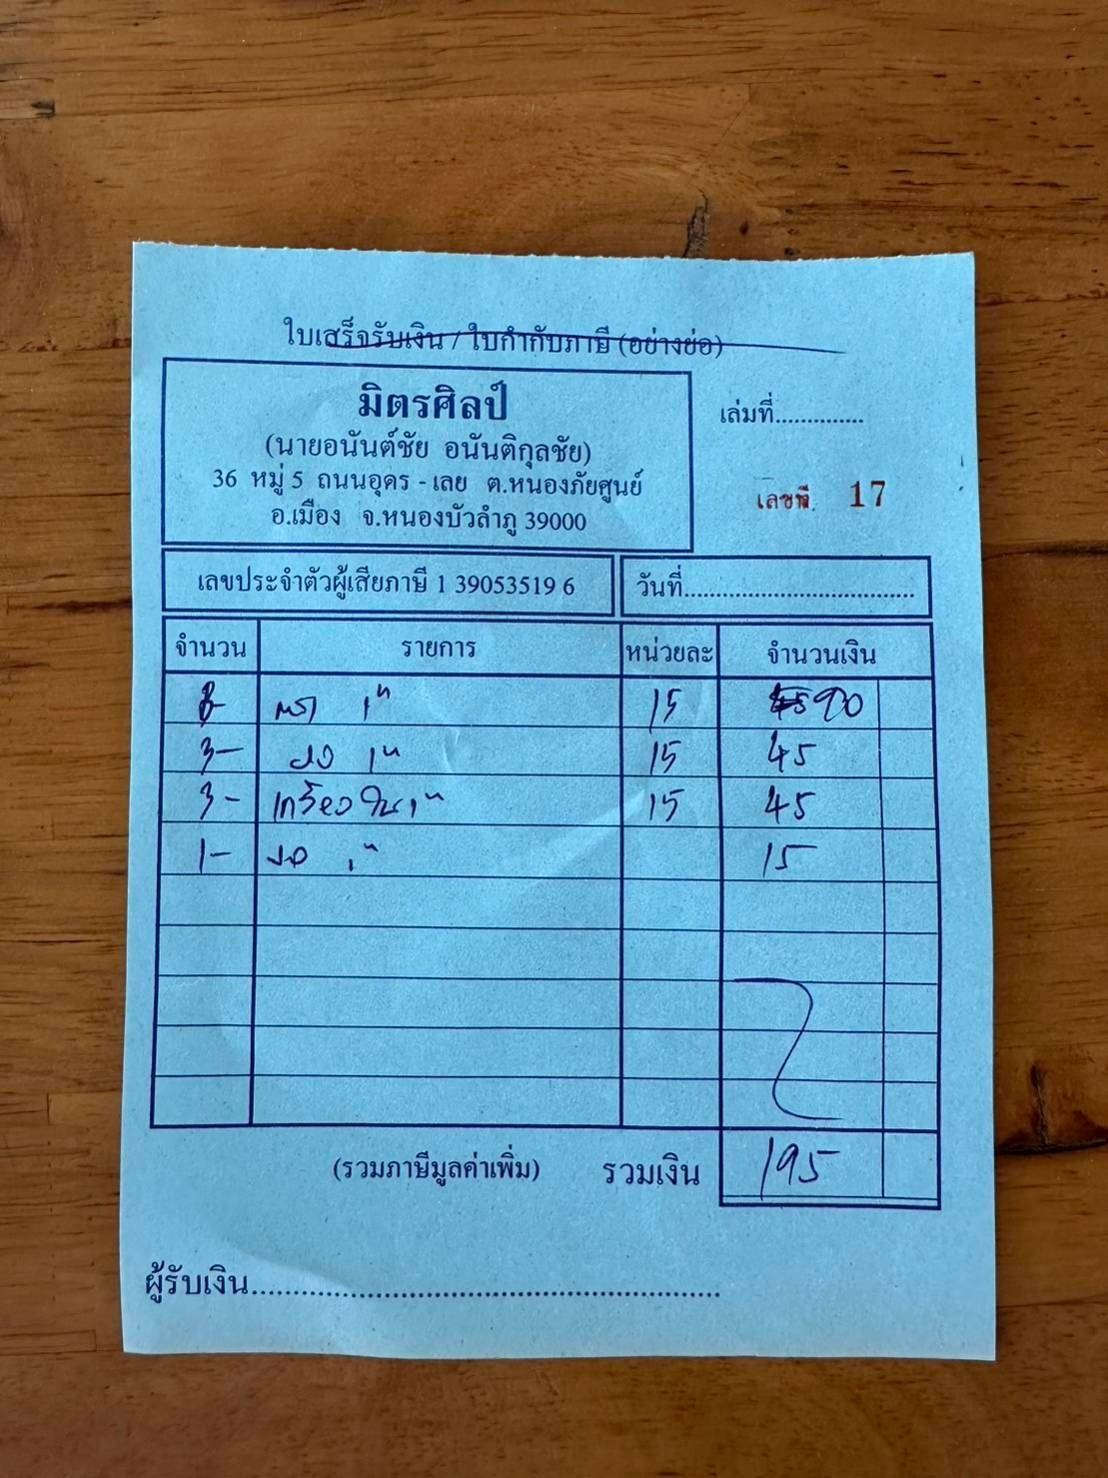 ใบเสร็จรับเงิน / ใบกำกับภาษี (อย่างย่อ)
มิตรศิลป์
(นายอนันต์ชัย อนันติกุลชัย)
36 หมู่ 5 ถนนอุดร - เลย ต.หนองภัยศูนย์
อ.เมือง จ.หนองบัวลำภู 39000
เล่มที่..............
เลขที่. 17
เลขประจำตัวผู้เสียภาษี 1 39053519 6
วันที่....................................
จำนวน รายการ หน่วยละ จำนวนเงิน
1" 15 90
3- งอ 1" 15 45
3- เกลียวใน 1" 15 45
1- งอ 1" 15
(รวมภาษีมูลค่าเพิ่ม) รวมเงิน 195
ผู้รับเงิน..........................................................